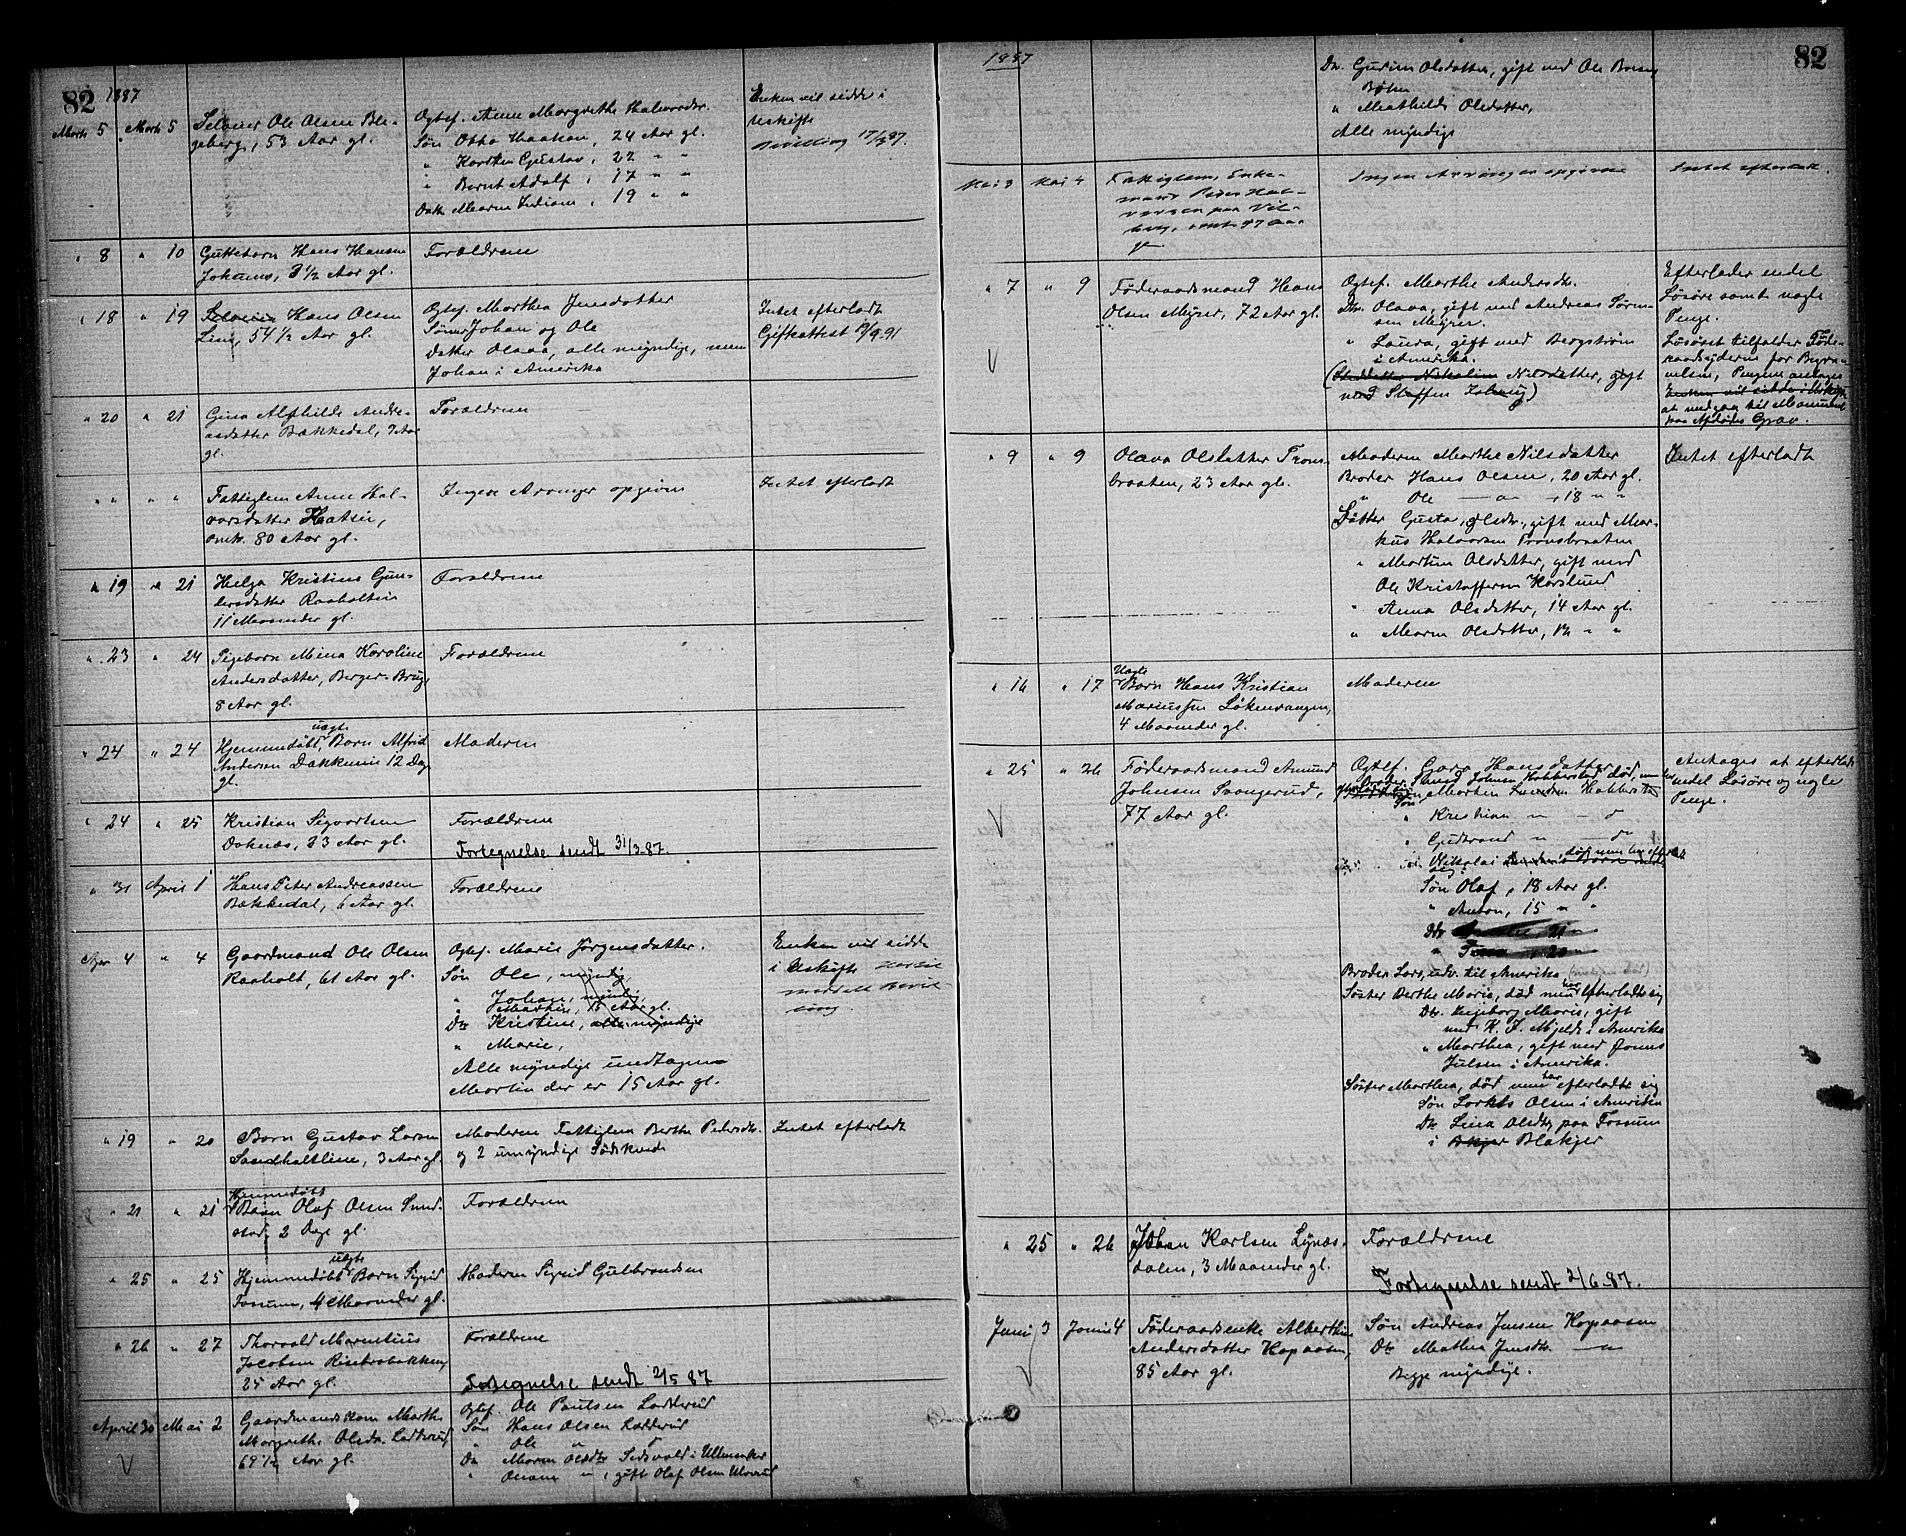 82 1887
Marts 5 Marts 5 Selveier Ole Olsen Ble-
geberg, 53 Aar gl.
Ogtef. Anne Margrethe Halvorsdr.
Søn Otto Haakon, 24 Aar gl.
" Karsten Gustav, 22 " "
" Bernt Adolf, 17 " "
Datt. Maren Indiane, 19 " "
Enken vil sidde i
Uskifte
Bevilling 17/3 87.
" 8 " 10 Guttebarn Hans Hansen
3 1/2 Aar gl.
Forældrene
" 18 " 19 Selveier Hans Olsen
Lin, 54 1/2 Aar gl.
Ogtef. Marthea Jensdatter
Sønner Johan og Ole
Datter Olava, alle myndige, men
Johan i Amerika
Intet efterladt
Gifteattest 19/9 91
" 20 " 21 Gina Alfhilde Andre-
asdatter Bækkedal, 7 Aar
gl.
Forældrene
" " " " Fattiglem Anne Hal-
vorsdatter
omtr. 80 Aar gl.
Ingen Arvinger opgiven
Intet efterladt
" 19 " 21 Helga Kristine Gun-
dersdatter Raaholtein
11 Maaneder gl.
Forældrene
" 23 " 24 Pigebarn Mina Karoline
Andersdatter, Berger-Brug
8 Aar gl.
Forældrene
" 24 " 24 Hjemmedøbt uægte Barn Alfred
Andersen 12 Dage
gl.
Moderen
" 24 " 25 Kristian Sigvartsen
Doknæs, 23 Aar gl.
Forældrene
Fortegnelse sendt 31/3 87.
" 31 April 1 Hans Peter Andreassen
Bækkedal, 6 Aar gl.
Forældrene
Apr 4 " 4 Gaardmand Ole Olsen
Raaholt, 61 Aar gl.
Ogtef. Marie Jørgensdatter.
Søn Ole, myndig
" Johan, myndig
" Martin, 15 Aar gl.
Dtr Kristine, alle myndige
" Marie,
Alle myndige undtagen
Martin der er 15 Aar gl.
Enken vil sidde
i Uskifte
" 19 " 20 Barn Gustav Larsen
Sandholtline, 3 Aar gl.
Moderen Fattiglem Berthe Pedersdtr.
og 2 umyndige Sødskende
Intet efterladt
" 21 " 21 Hjemmedøbt
Barn Olaf Olsen Sund-
stad, 2 Dage gl.
Forældrene
" 25 " 25 uægte
Hjemmedøbt Barn Sigrid
Fossum, 4 Maaneder gl.
Moderen Sigrid Gulbrandsen
" 26 " 27 Thorvald Marnelius
Jacobsen Risebrobakken,
25 Aar gl.
Forældrene
Fortegnelse sendt 2/5 87
April 30 Mai 2 Gaardmandskone Marthe
Margrethe Olsdtr. Ladderud
69 1/2 Aar gl.
Ogtef. Ole Paulsen Ladderud
Søn Hans Olsen Ladderud
" Ole " "
Dtr Maren Olsdtr Sedsvold i Ullensaker
" " gift Olaf Olsen Ulverud
1887 82
Dtr. Gurine Olsdatter, gift med Ole
" Mathilde Olsdatter,
Alle myndige
Mai 3 Mai 4 Fattiglem, Enke-
mand Peder Hal-
vorsen paa Vil-
berg, omtr 87 Aar
gl.
Ingen Arvinger opgivne
Intet efterladt.
" 7 " 9 Føderaadsmand Hans
Olsen Myrer, 72 Aar gl.
Ogtef. Marthe Andersdtr.
Dtr. Olava, gift med Andreas Søren-
sen Myrer.
" Laura, gift med Bergstrøm
i Amerika.
(Steddatter Nikoline Nilsdatter, gift
med Steffen )
Efterlader endel
Løsøre samt nogle
Penge.
Løsøret tilfalder Føde-
raadsyderne for Begra-
velsen, Pengene antages
Enken vil sidde i Uskifte
at medgaa til Monument
paa Afdødes Grav.
" 9 " 9 Olava Olsdatter Trons-
braaten, 23 Aar gl.
Moderen Marthe Nilsdatter
Broder Hans Olsen, 20 Aar gl.
" Ole — " — , 18 " "
Søster Gusta, Olsdtr., gift med Mar-
kus Halvorsen Tronsbraaten
" Martine Olsdatter, gift med
Ole Kristoffersen Horslund
" Anna Olsdatter, 14 Aar gl.
" Maren Olsdatter, 12 " "
Intet efterladt
" 16 " 17 Uægte
Barn Hans Kristian
Mariussen Løkenvangen,
4 Maaneder gl.
Moderen
" 25 " 26 Føderaadsmand Amund
Johnsen Svangerud,
77 Aar gl.
Ogtef. Hansdatter
Broder Johnsen Habberstad død, men har
Søn Morten Habberstad
" Kristian " — "
" Gudbrand " — "
" Nikolai død men har efterladt
sig:
Søn Olaf, 18 Aar gl.
" Anton, 15 " "
Broder Lars, udv. til Amerika
Søster Berthe Marie, død men har efterladt sig
Dtr. Ingeborg Marie, gift
med K. J. Mjelde i Amerika
" Marthea, gift med
Julsen i Amerika.
Søster Marthea, død men har efterladt sig
Søn Olsen i Amerika
Dtr Lina Olsdtr paa Fossum
i Blakjer
Antages at efterlade
endel Løsøre og nogle
Penge.
" 25 " 26 Johan Karlsen Lynæs-
dalen, 3 Maaneder gl.
Forældrene
Fortegnelse sendt 2/6 87.
Juni 3 Juni 4 Føderaadsenke Alberthine
Andersdatter Kopaasen,
85 Aar gl.
Søn Andreas Jensen Kopaasen
Dtr Mathea Jensdtr. — " —
Begge myndige.